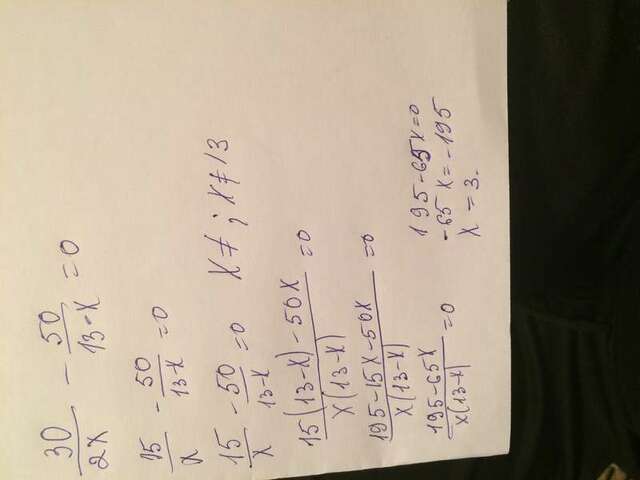 30/2x - 50/13-x = 0
15/x - 50/13-x = 0
15/x - 50/13-x = 0 x ≠ ; x ≠ 13
15(13-x)-50x/x(13-x) = 0
195-15x-50x/x(13-x) = 0
195-65x/x(13-x) = 0
195-65x=0
-65x=-195
x = 3.